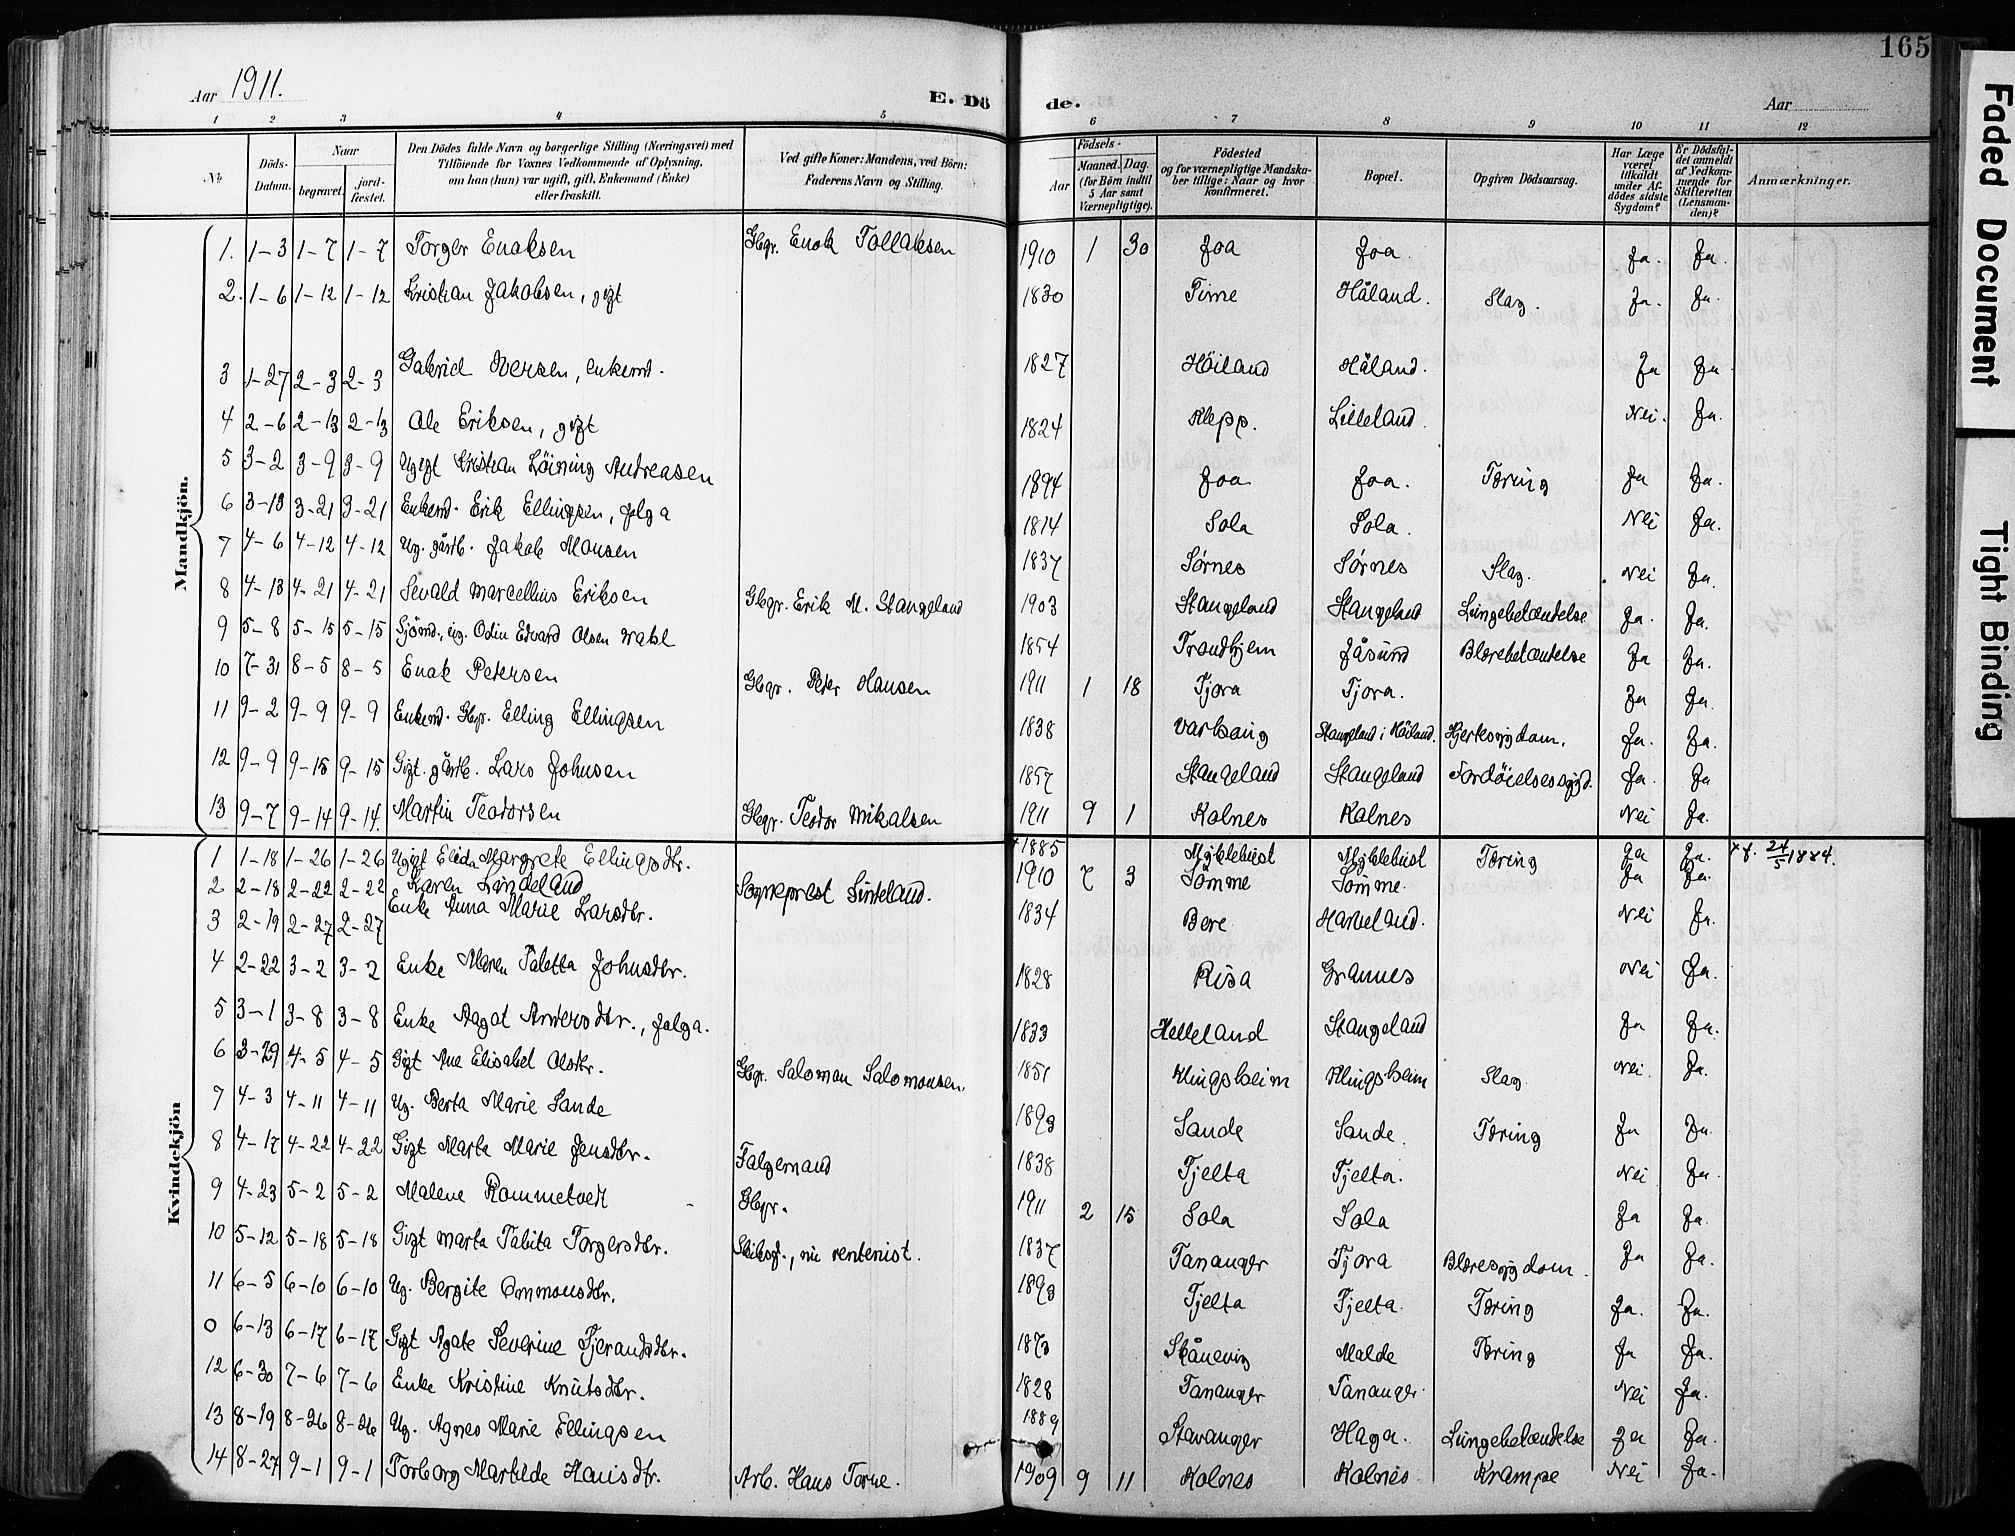 165
Aar 1911.
E. Dö de.
Aar
1 2 3 4 5 6 7 8 9 10 11 12
No.
Döds-Datum.
Naar
begravet.
jord-fæstet.
Den Dödes fulde Navn og borgerlige Stilling (Næringsvei) med Tilföiende for Voxnes Vedkommende af Oplysning, om han (hun) var ugift, gift, Enkemand (Enke) eller fraskilt.
Ved gifte Koner: Mandens, ved Börn: Faderens Navn og Stilling.
Födsels-
Aar
Maaned. Dag.
(for Börn indtil 5 Aar samt Værnepligtige).
Födested og for værnepligtige Mandskaber tillige: Naar og hvor konfirmeret.
Bopæl.
Opgiven Dödsaarsag.
Har Læge været tilkaldt under Afdödes sidste Sygdom?
Er Dödsfaldet anmeldt af Vedkommende for Skifteretten (Lensmanden)?
Anmærkninger.
Mandkjön.
1. 1-3 1-7 1-7 Torger Enaksen Gbgr. Enok Tollaksen 1910 1 30 Joa Joa. Ja. Ja.
2. 1-6 1-12 1-12 Kristian Jakobsen, gift 1830 Time Håland. Slag. Ja. Ja.
3 1-27 2-3 2-3 Gabriel Iversen, enkemd. 1827 Höiland Håland. Ja Ja
4 2-6 2-13 2-13 Ole Eriksen, gift 1824 Klepp. Lilleland Nei. Ja.
5 3-2 3-9 3-9 Ugift Kristian Löining Andreasen 1894 Joa Joa. Tæring Ja Ja.
6 3-13 3-21 3-21 Enkemd. Erik Ellingsen, folga 1814 Sola Sola. Nei Ja.
7 4-6 4-12 4-12 Ug. gårdb. Jakob Monsen 1837 Sørnes Sørnes Slag. Nei Ja.
8 4-13 4-21 4-21 Sevald Marcellius Eriksen Gbgr. Erik M. Stangeland 1903 Stangeland Stangeland Lungebetændelse Ja. Ja.
9 5-8 5-15 5-15 Sjömd., ug. Odin Edvard Olsen Wahl 1854 Trondhjem Jåsund Blærebetændelse Ja Ja.
10 7-31 8-5 8-5 Enok Petersen Gbgr. Peter Hansen 1911 1 18 Tjora Tjora. Ja Ja.
11 9-2 9-9 9-9 Enkemd. Gbgr. Elling Ellingsen 1838 Varhaug Stangeland i Höiland. Hjertesygdom. Ja. Ja.
12 9-9 9-15 9-15 Gift. gårdb. Lars Johnsen 1857 Stangeland Stangeland Fordöielsessygd. Ja. Ja
13 9-7 9-14 9-14. Martin Teodorsen Gbgr. Teodor Mikalsen 1911 9 1 Kolnes Kolnes Nei Ja.
Kvindekjön
1 1-18 1-26 1-26 Ugift Elida Margrete Ellingsdtr. +1885 Myklebust Myklebust Tæring Ja Ja. + f. 24/5 1884.
2 2-18 2-22 2-22 Karen Lindeland Sogneprest Lindeland. 1910 7 3 Sömme Sömme. Ja Ja.
3 2-19 2-27 2-27 Enke Anna Marie Larsdtr. 1834 Bore Harveland. Nei Ja.
4 2-22 3-2 3-2 Enke Maren Taletta Johnsdtr. 1828 Risa Grannes Nei Ja.
5 3-1 3-8 3-8 Enke Aagot Andersdtr., folga. 1833 Helleland Stangeland Ja Ja.
6 3-29 4-5 4-5 Gift Ane Elisabet Olsdtr. Gbgr. Salomon Salomonsen. 1851 Klingsheim Klingsheim Slag Nei. Ja.
7 4-3 4-11 4-11 Ug. Berta Marie Sande 1893 Sande Sande. Tæring Ja Ja.
8 4-17 4-22 4-22 Gift Marta Marie Jensdtr. Folgemand 1838 Tjelta Tjelta. Nei Ja.
9 4-23 5-2 5-2 Malene Rommetvedt Gbgr. 1911 2 15 Sola Sola Ja Ja.
10 5-12 5-18 5-18 Gift Marta Tabita Torgersdtr. Skibsf., nu rentenist. 1837 Tananger Tjora Blæresygdom. Ja Ja.
11 6-5 6-10 6-10 Ug. Bergite Ommonsdtr. 1893 Tjelta Tjelta. Tæring Ja. Ja.
0 6-13 6-17 6-17 Gift Agate Severine Tjerandsdtr. 1873 Skånevig Malde Tæring Ja Ja.
12 6-30 7-6 7-6 Enke Kristine Knutsdtr. 1828 Tananger Tananger. Nei Ja.
13 8-19 8-26 8-26 Ug. Agnes Marie Ellingsen 1889 Stavanger Haga. Lungebetændelse Ja Ja.
14 8-27 9-1 9-1 Torborg Martilde Hansdtr. Arb. Hans Torne. 1909 9 11 Kolnes Kolnes. Krampe Nei Ja.
Faded Document
Tight Binding